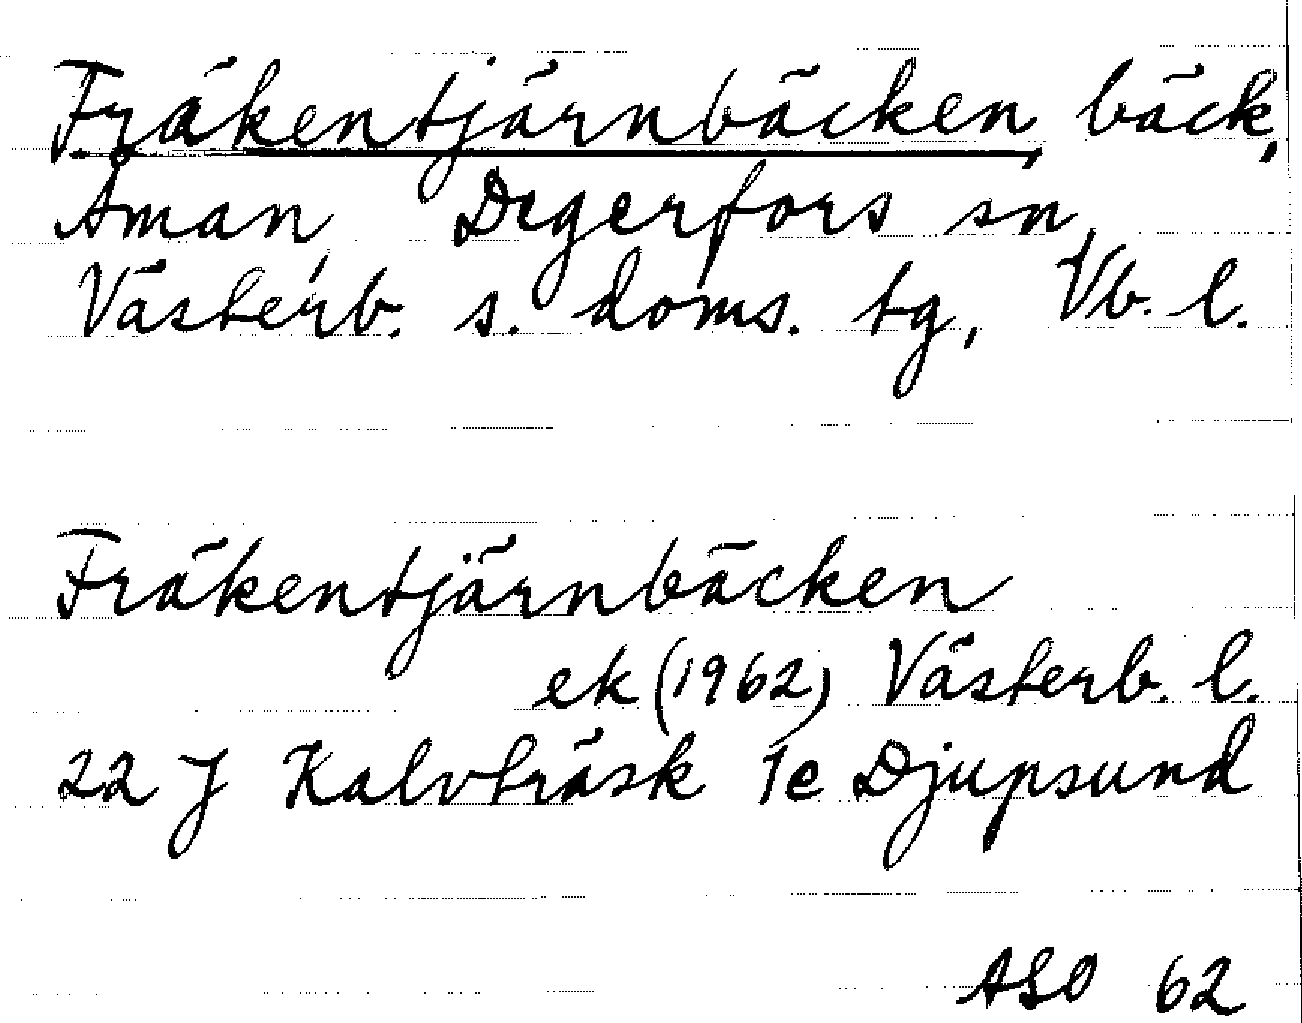 Fräkentjärnbäcken, bäck,
Åman, Degerfors sn,
Västerb. s. doms. tg, Vb. l.
Fräkentjärnbäcken
ek (1962) Västerb. l.
22 J Kalvträsk 1e Djupsund
ASO 62